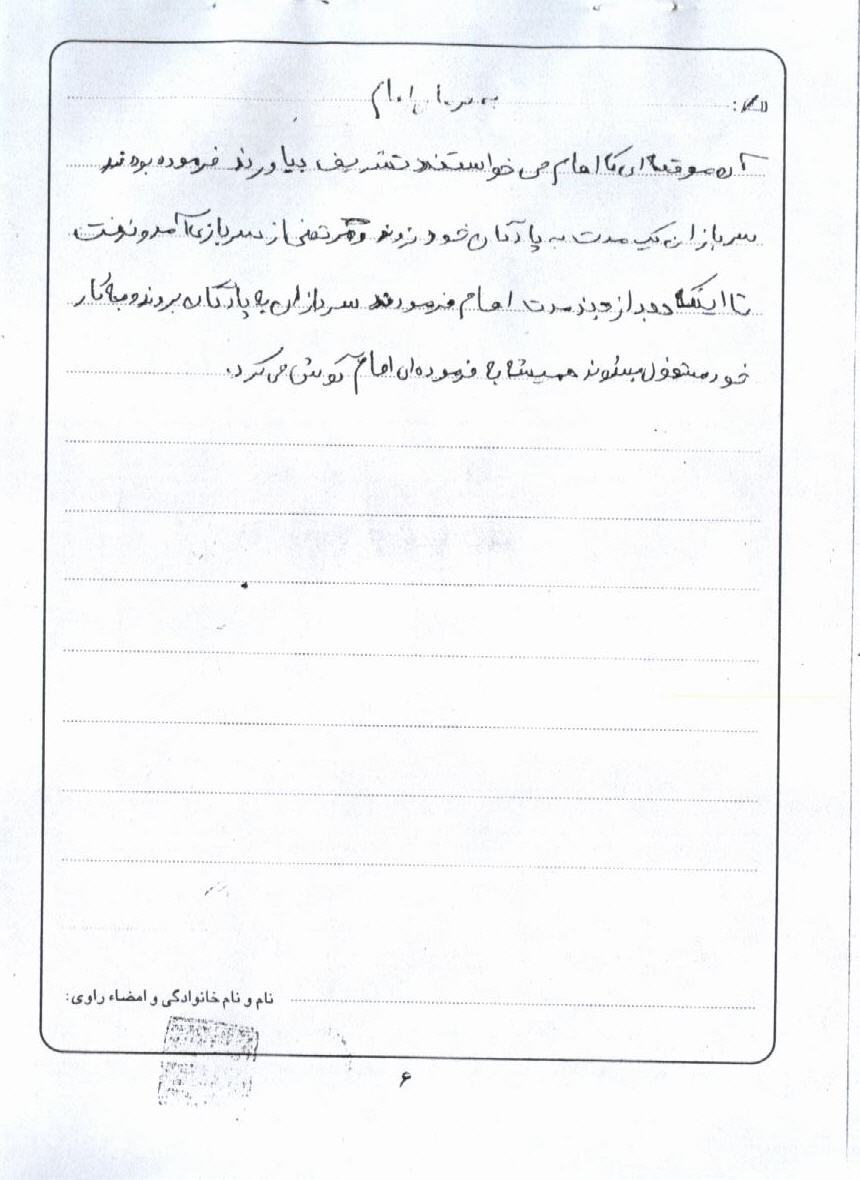 به فرمان امام
آن موقعه ای که امام می خواستند تشریف بیاورند فرموده بودند
سربازان یک مدت به پادگان خود نروند و مرتضی از سربازی آمد و نرفت
تا اینکه بعد از چند مدت امام فرمودند سربازان به پادگان بروند و به کار
خود مشغول بشوند همیشه به فرموده ای امام گوش می کرد.
نام و نام خانوادگی و امضاء راوی:
۶